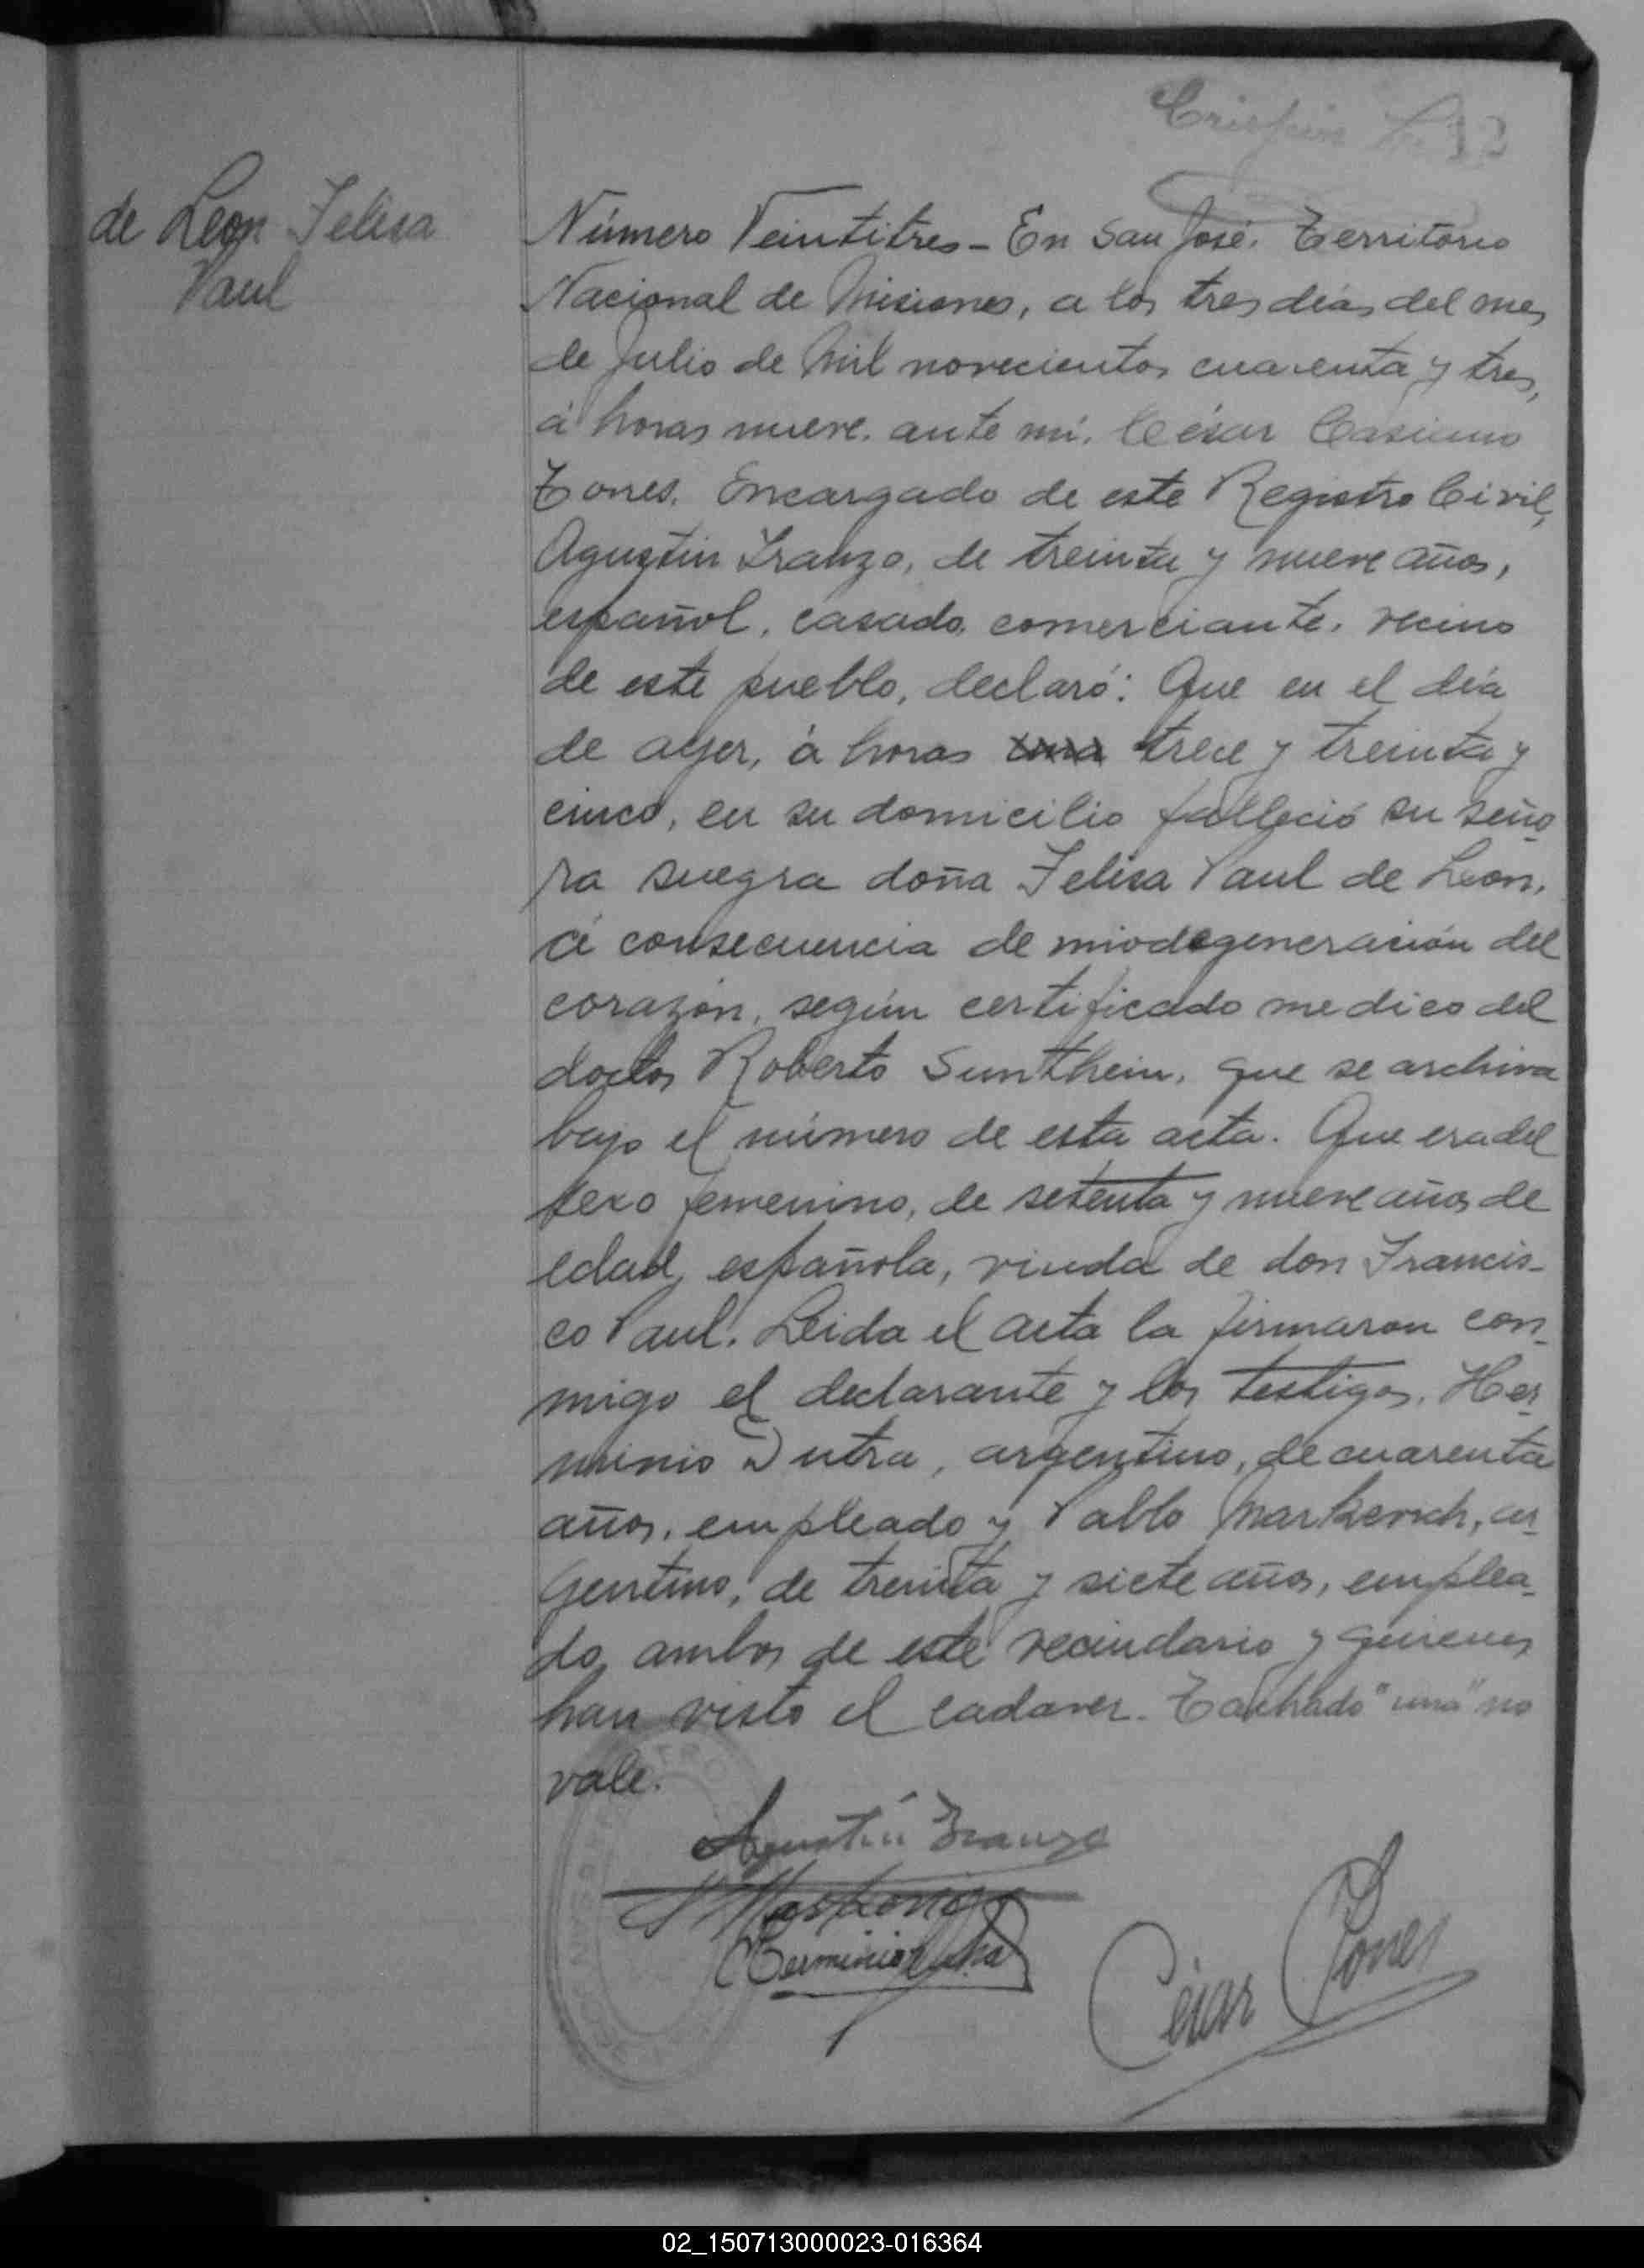 de Leon Felisa
Paul
Número Veintitres - En San José, Territorio
Nacional de Misiones, a los tres días del mes
de Julio de mil novecientos cuarenta y tres,
á horas nueve, ante mí, César Casiano
Torres, Encargado de este Registro Civil,
Agustin Iranzo, de treinta y nueve años,
español, casado, comerciante, vecino
de este pueblo, declaró: Que en el día
de ayer, á horas una trece y treinta y
cinco, en su domicilio falleció su seño-
ra suegra doña Felisa Paul de León,
á consecuencia de miodegeneración del
corazón, según certificado medico del
doctor Roberto Sunthein, que se archiva
bajo el número de esta acta. Que era del
sexo femenino, de setenta y nueve años de
edad, española, viuda de don Francis-
co Paul. Leida el acta la firmaron con-
migo el declarante y los testigos, Her-
minio Dutra, argentino, de cuarenta
años, empleado y Pablo Markevich, ar-
gentino, de treinta y siete años, emplea-
do, ambos de este vecindario y quienes
han visto el cadaver. Tachado "una" no
vale.
Agustín Iranzo
Herminio Dutra
César Torres
02_150713000023-016364